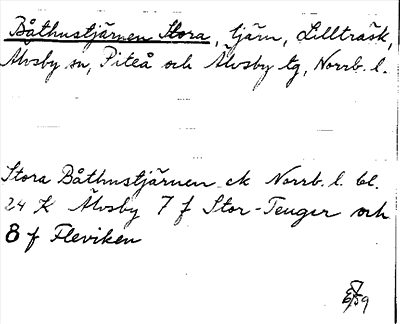 Båthustjärnen Stora, tjärn, Lillträsk,
Älvsby sn, Piteå och Älvsby tg, Norrb. l.
Stora Båthustjärnen ek Norrb. l. bl.
24 K Älvsby 7 f Stor-Tenger och
8 f Fleviken